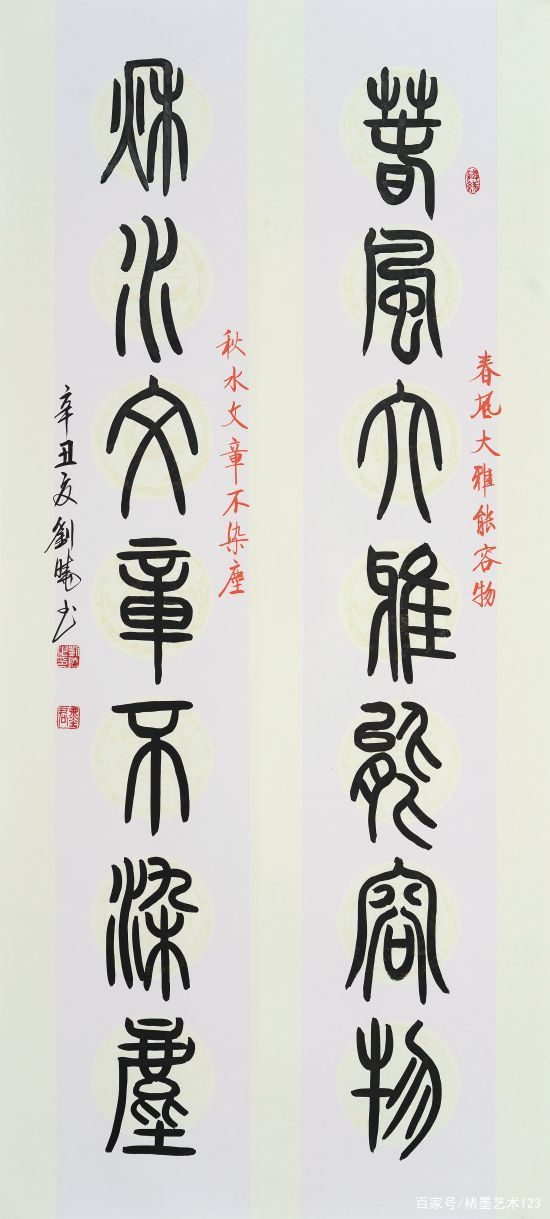 春風大雅能容物
春风大雅能容物
秋水文章不染塵
秋水文章不染塵
辛丑夏劉曉书
百家号/楮墨艺术123